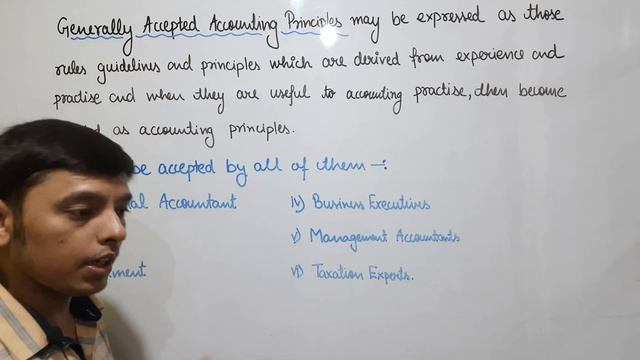 Generally Accepted Accounting Principles may be expressed as those
rules guidelines and principles which are derived from experience and
practise and when they are useful to accounting practise, then become
as accounting principles.
be accepted by all of them :-
Accountant
iv) Business Executives
v) Management Accountants
vi) Taxation Experts.